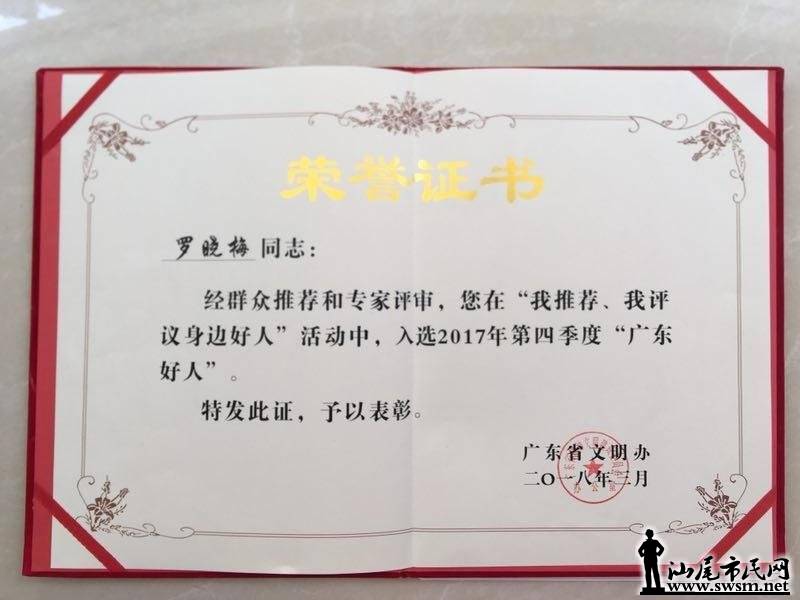 荣誉证书
罗晓梅同志：
经群众推荐和专家评审，您在“我推荐、我评
议身边好人”活动中，入选2017年第四季度“广东
好人”。
特发此证，予以表彰。
广东省文明办
二〇一八年三月
汕尾市民网
www.swsm.net